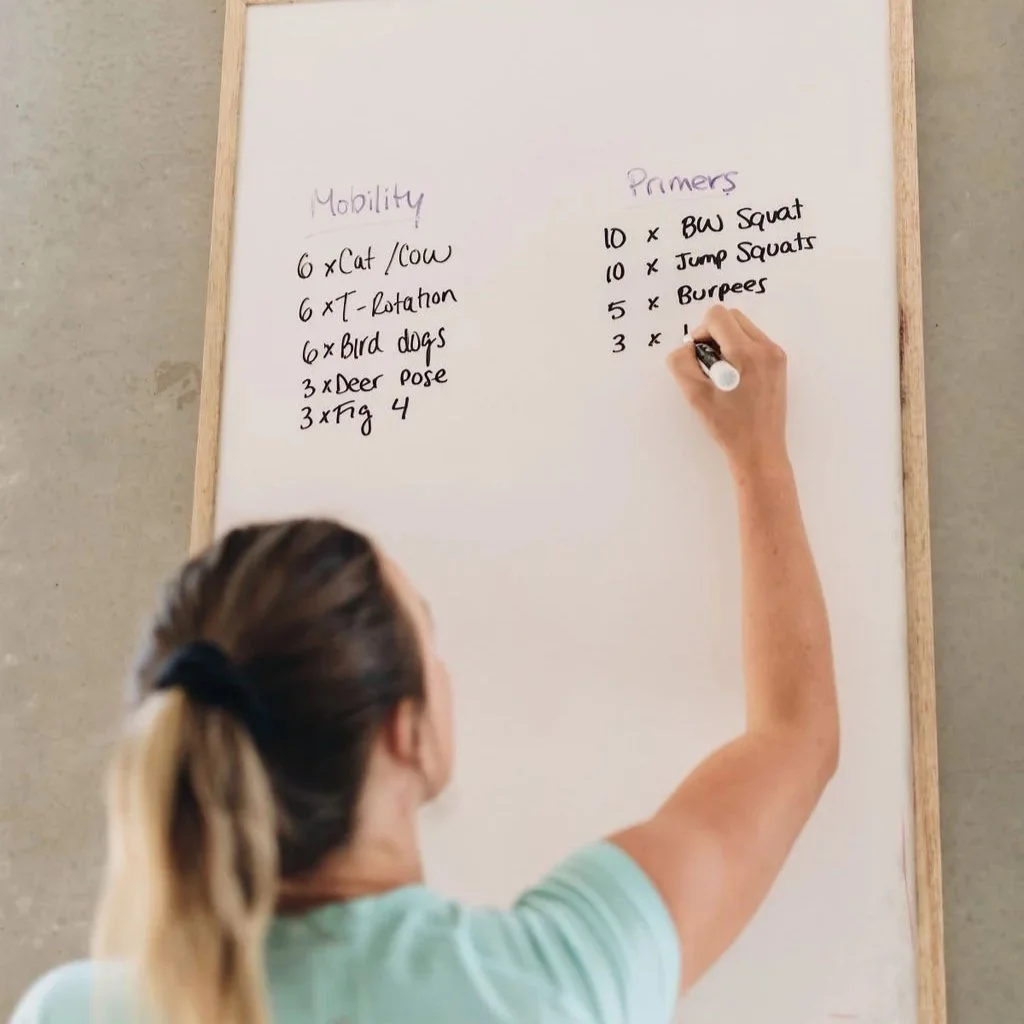 Mobility
6 x Cat / Cow
6 x T-Rotation
6 x Bird dogs
3 x Deer pose
3 x Fig 4
Primers
10 x BW Squat
10 x Jump Squats
5 x Burpees
3 x